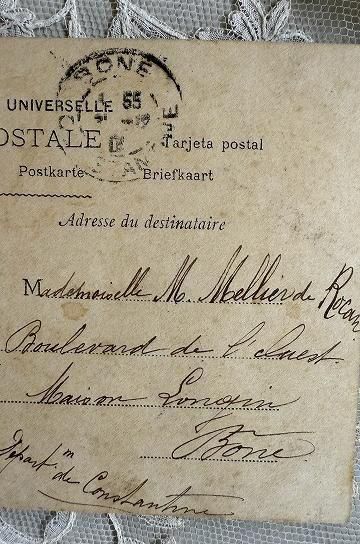 BONE
55
CONSTANTINE
UNIVERSELLE
POSTALE Tarjeta postal
Postkarte Briefkaart
Adresse du destinataire
Mademoiselle M. Mellier de
Boulevard de l'Ouest
Maison
Bône
Départ.m
de Constantine